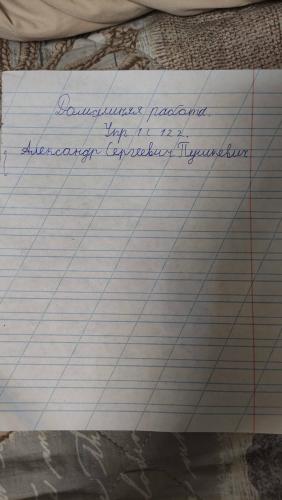 Домашняя работа.
Упр 1 с 122.
Александр Сергеевич Пушкевич